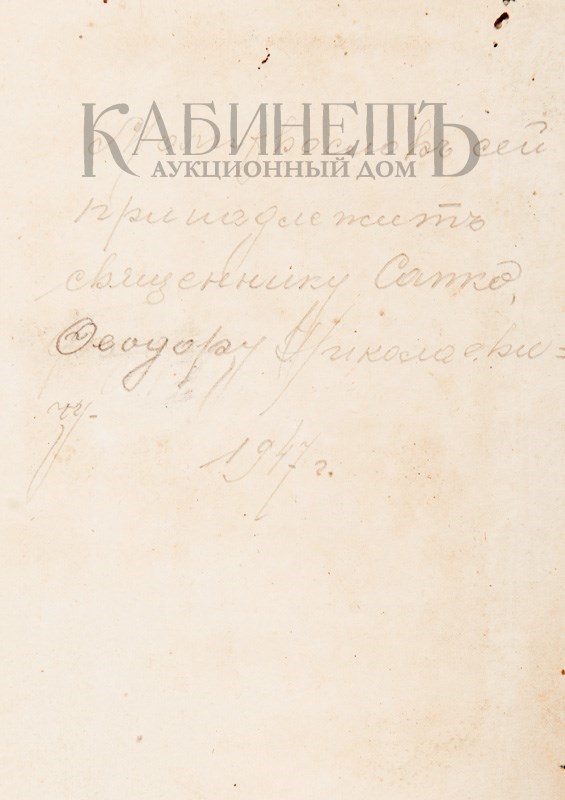 КАБИНЕТЪ
сей
АУКЦИОННЫЙ ДОМ
принадлежитъ
священнику Сапко,
Ѳеодору Николаеви=
чу-
1947 г.